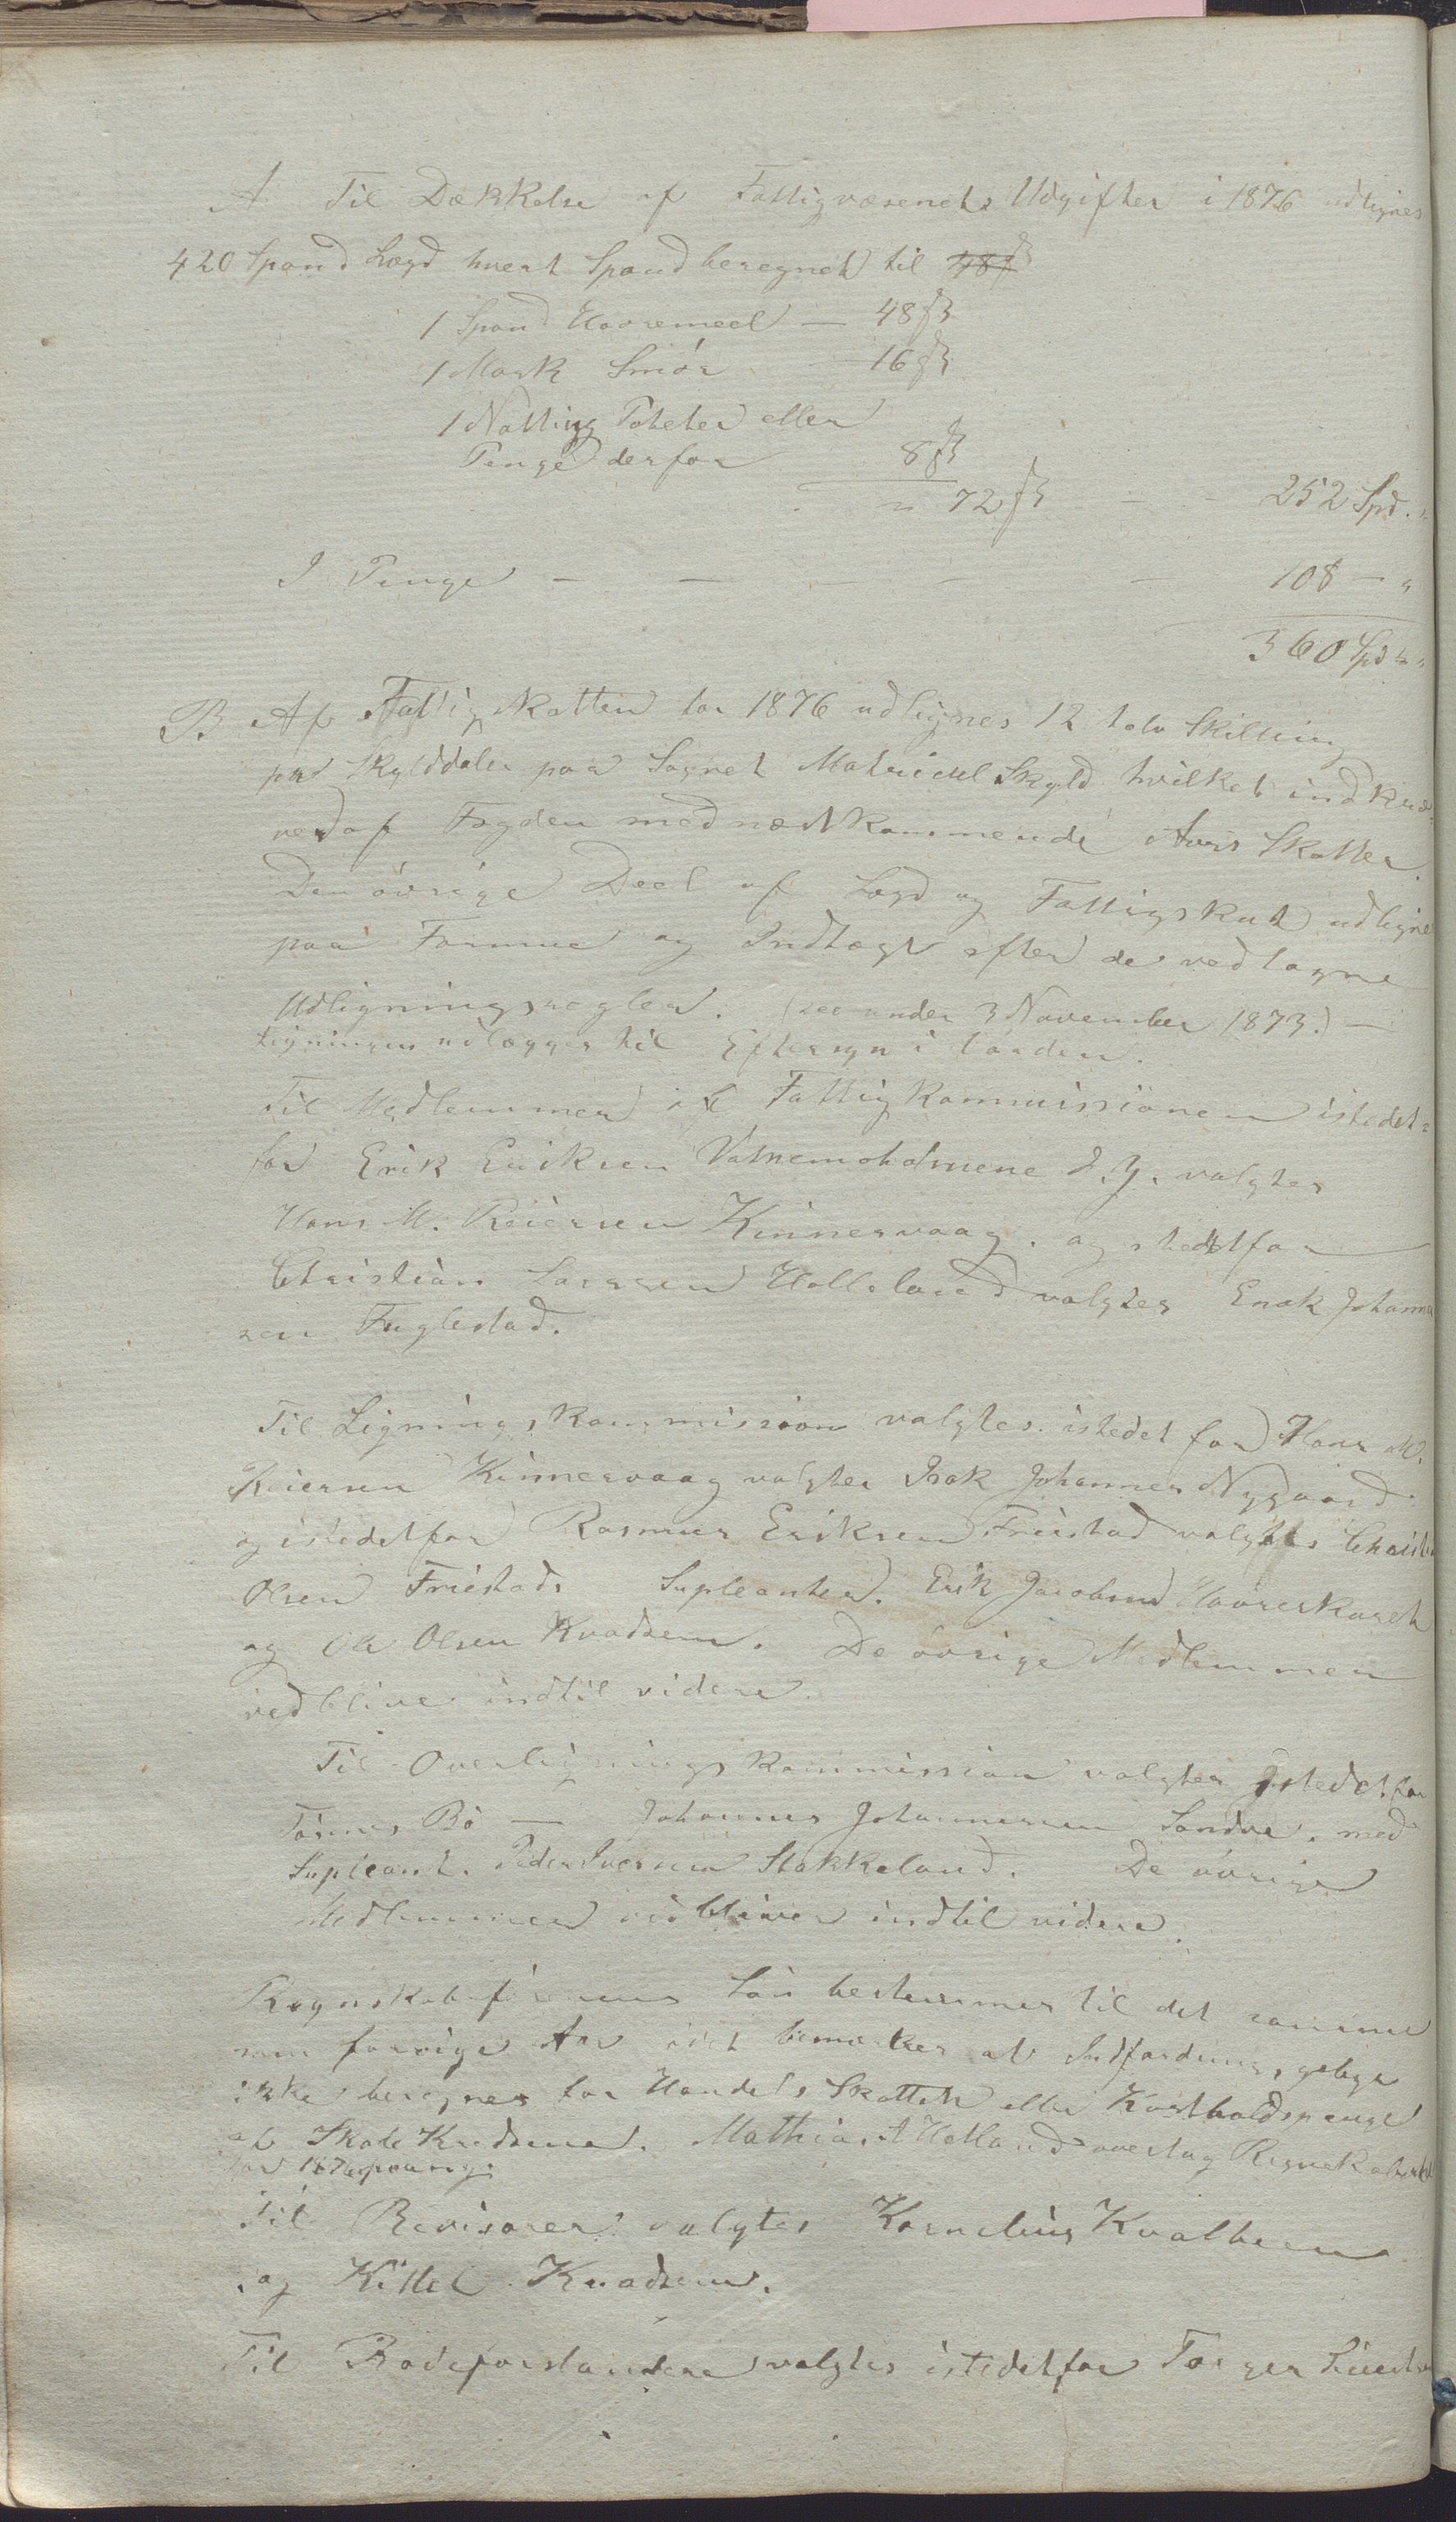 A. Til Dækkelse af Fattigvæsenets Udgifter i 1876 udlignes
420 Spand Lægd hvert Spand beregnet til 48 ß
1 Spand Havremeel — 48 ß
1 Mark Smör — 16 ß
1 Notting Poteter eller
Penge derfor 8 ß
" 72 ß - - 252 Spd. "
I Penge — — — — — 108 — "
360 Spd "
B Af Fattigskatten for 1876 udlignes 12 tolv Skilling
per Skylddaler paa Sognets Matricul Skyld hvilket indkræ-
ves af Fogden med næstkommende Aars Skatter.
Den övrige Deel af Lægd og Fattigskat udligne
paa Formue og Indtægt efter de vedtagne
Udligningsregler. (see under 3 November 1873.) —
ligningen udlægges til Eftersyn i
Til Medlemmer i Fattigkommissionen istedet-
for Erik Eriksen Vatnemoholmene d. y. valgtes
Hans M. Reiersen Kinnervaag. og istedetfor
Christian Larsen Hollsland valgtes Enok Johanne
sen Fuglestad.
Til Ligningskommission valgtes istedet for Hans M.
Reiersen Kinnervaag valgtes Isak Johannes Nygaard
og istedetfor Rasmus Eriksen Friestad valgtes Christen
Olsen Friestad. Supleanter. Erik Jacobsen
og Ole Olsen Kvadsem. De övrige Medlemmer
vedblive indtil videre.
Til Overligningskommission valgtes Istedetfor
Tönnes Bö — Johannes Johannesen Sandve. med
Supleant. Peder Iversen Stokkeland. De övrige
Medlemmer vedbliver indtil videre.
Regnskabsförerens Lön bestemmes til det samme
som forrige Aar idet bemærkes at Indfordringsgebyr
ikke beregnes for Handels Skatten eller Kostholdspenge
af Skole Kredsene. Mathias A Hetland overtog Regnskabet
for 1876
Til Revisorer valgtes Kornelius Kvalbein
og Kittel Kvadsem.
Til Rodeforstandere valgtes istedetfor Torger